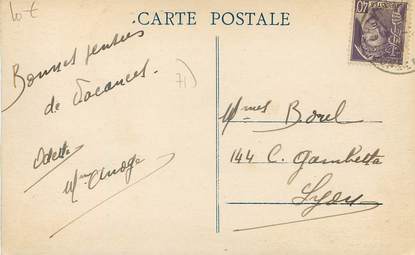 10 €
CARTE POSTALE
40
Bonnes pensées
de Vacances.
71)
Odette
Mmes Borel
144 C. Gambetta
Lyon